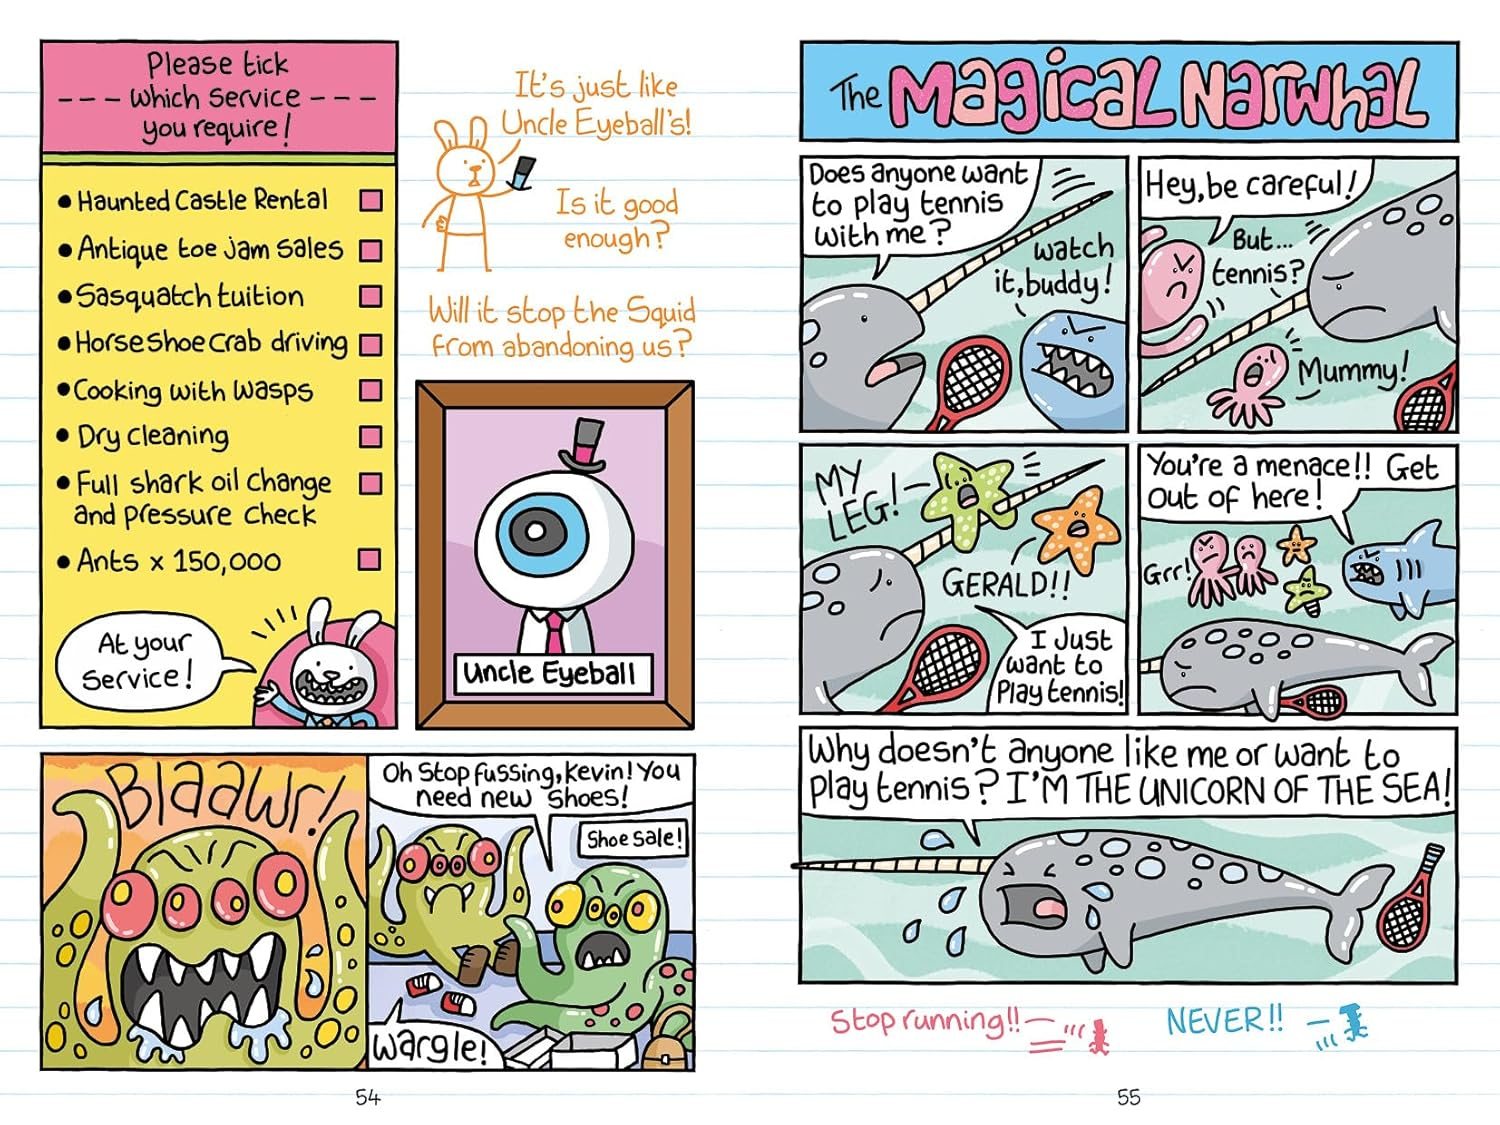 Please tick
--- which service ---
you require!
• Haunted Castle Rental
• Antique toe jam sales
• Sasquatch tuition
• Horseshoe Crab driving
• Cooking with wasps
• Dry cleaning
• Full shark oil change
and pressure check
• Ants x 150,000
At your
service!
It's just like
Uncle Eyeball's!
Is it good
enough?
Will it stop the Squid
from abandoning us?
Uncle Eyeball
Blaawr!
Oh stop fussing, Kevin! You
need new shoes!
Shoe sale!
Wargle!
54
The MAGICAL NARWHAL
Does anyone want
to play tennis
with me?
Watch
it, buddy!
Hey, be careful!
But...
tennis?
Mummy!
MY
LEG!
GERALD!!
I Just
want to
Play tennis!
You're a menace!! Get
out of here!
Grr!
Why doesn't anyone like me or want to
play tennis? I'M THE UNICORN OF THE SEA!
Stop running!!
NEVER!!
55